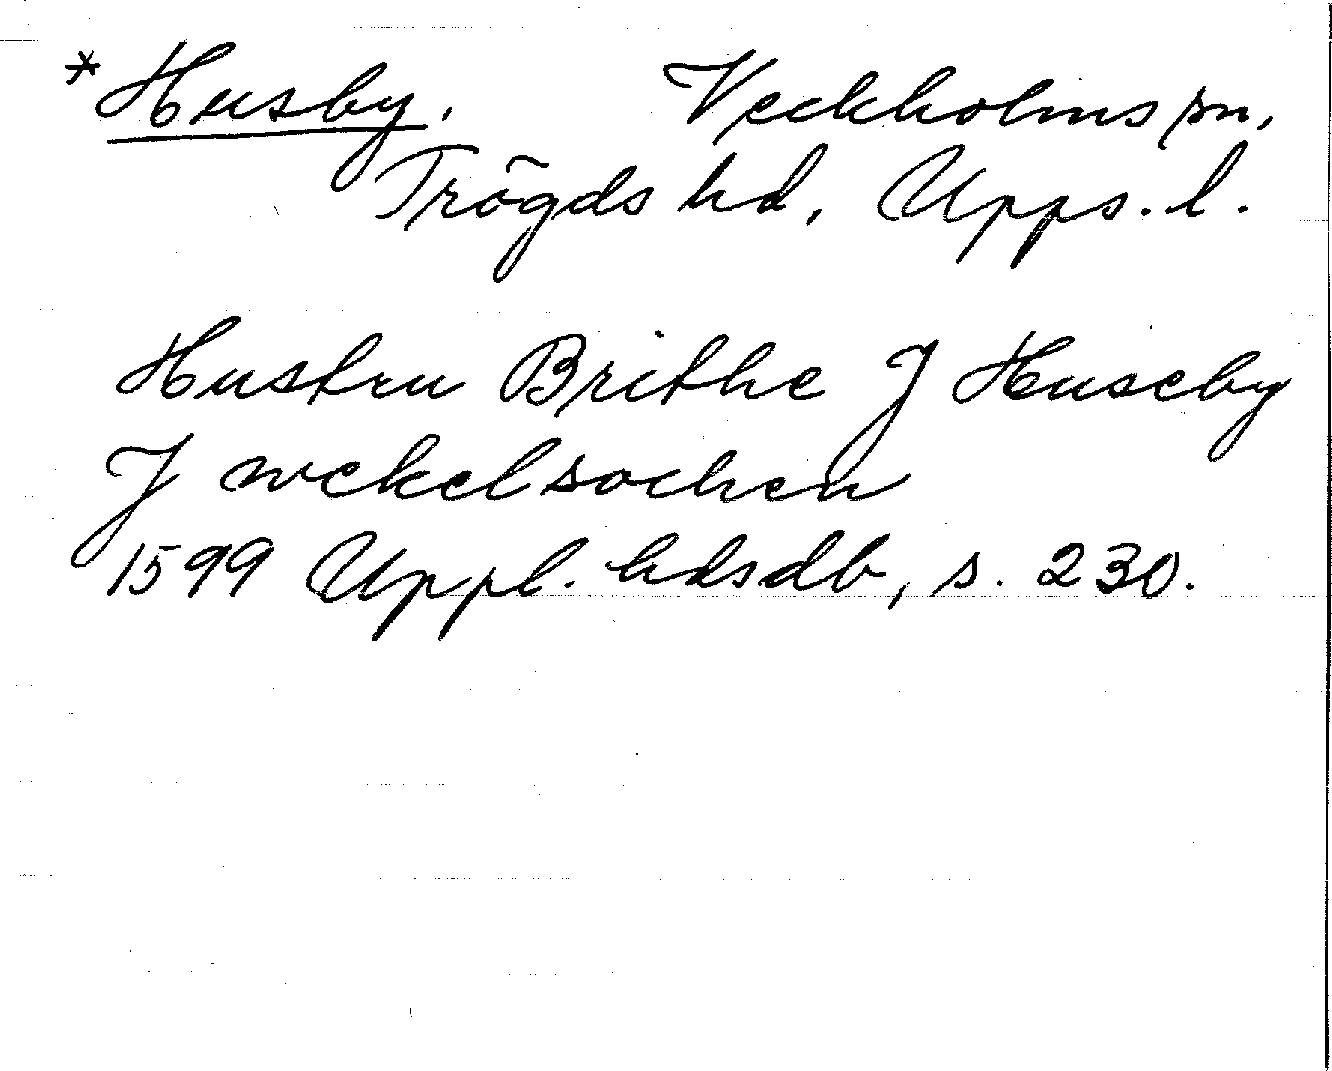 *Husby. Veckholms sn,
Trögds hd, Upps. l.
Hustru Brithe J Huseby
J wekelsochen
1599 Uppl. hdsdb, s. 230.